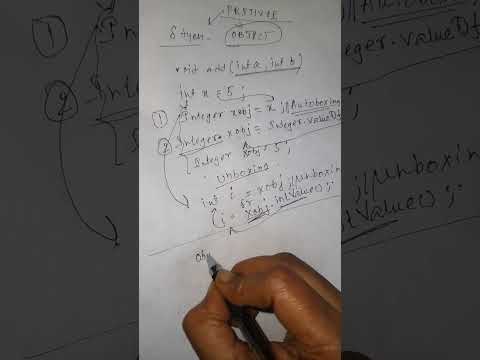 PRITIVE
6 types OBJECT
void add (int a, int b)
int x = 5 ;
① Integer xobj = x ; // Autoboxing
② Integer xobj = Integer.valueOf
[ Integer xobj = 5 ;
Unboxing
int i = xobj ; // Unboxin
or
i = xobj.intValue() ;